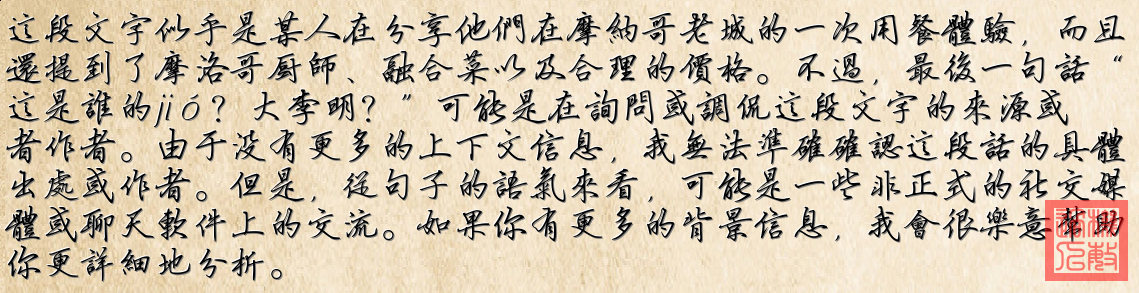 這段文字似乎是某人在分享他們在摩納哥老城的一次用餐體驗，而且
還提到了摩洛哥廚師、融合菜以及合理的價格。不過，最後一句話“
這是誰的jió？大李明？”可能是在詢問或調侃這段文字的來源或
者作者。由于沒有更多的上下文信息，我無法準確確認這段話的具體
出處或作者。但是，從句子的語氣來看，可能是一些非正式的社交媒
體或聊天軟件上的交流。如果你有更多的背景信息，我會很樂意幫助
你更詳細地分析。